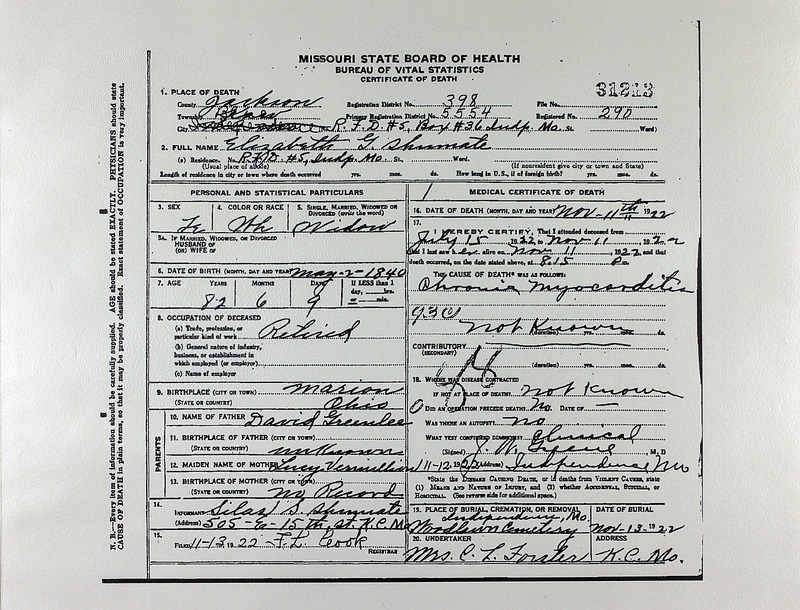 MISSOURI STATE BOARD OF HEALTH
BUREAU OF VITAL STATISTICS
CERTIFICATE OF DEATH
31213
1. PLACE OF DEATH
County Jackson Registration District No. 398 File No.
Township Primary Registration District No. 5554 Registered No. 290
City Independence R.F.D. #5, Box #36 Indp. Mo. St. Ward)
2. FULL NAME Elizabeth G. Shumate
(a) Residence. No. R.F.D. #5, Indp. Mo. St., Ward.
(Usual place of abode) (If nonresident give city or town and State)
Length of residence in city or town where death occurred yrs. mos. ds. How long in U.S., if of foreign birth? yrs. mos. ds.
PERSONAL AND STATISTICAL PARTICULARS
3. SEX 4. COLOR OR RACE 5. SINGLE, MARRIED, WIDOWED OR DIVORCED (write the word)
Fe Wh Widow
5A. IF MARRIED, WIDOWED, OR DIVORCED
HUSBAND OF
(OR) WIFE OF
6. DATE OF BIRTH (MONTH, DAY AND YEAR) May-2-1840
7. AGE YEARS MONTHS DAYS If LESS than 1 day, hrs. or min.
82 6 9
8. OCCUPATION OF DECEASED
(a) Trade, profession, or
particular kind of work Retired
(b) General nature of industry,
business, or establishment in
which employed (or employer)
(c) Name of employer
9. BIRTHPLACE (CITY OR TOWN) Marion
(STATE OR COUNTRY) Ohio
PARENTS
10. NAME OF FATHER David Greenlee
11. BIRTHPLACE OF FATHER (CITY OR TOWN)
(STATE OR COUNTRY) unknown
12. MAIDEN NAME OF MOTHER Lucy Vermillion
13. BIRTHPLACE OF MOTHER (CITY OR TOWN)
(STATE OR COUNTRY) no Record
14.
INFORMANT Silas S. Shumate
(Address) 505-E-15th St. K.C. Mo
15.
FILED 11-13, 1922 F.L. Cook
REGISTRAR
MEDICAL CERTIFICATE OF DEATH
16. DATE OF DEATH (MONTH, DAY AND YEAR) Nov-11th 1922
17.
I HEREBY CERTIFY, That I attended deceased from
July 15, 1922, to Nov 11, 1922
that I last saw her alive on Nov 11, 1922 and that
death occurred, on the date stated above, at 8.15 P.
THE CAUSE OF DEATH* WAS AS FOLLOWS:
Chronic Myocarditis
93C
Not Known (duration) yrs. mos. ds.
CONTRIBUTORY
(SECONDARY)
(duration) yrs. mos. ds.
18. WHERE WAS DISEASE CONTRACTED
IF NOT AT PLACE OF DEATH? not known
DID AN OPERATION PRECEDE DEATH? No. DATE OF —
WAS THERE AN AUTOPSY? no
WHAT TEST CONFIRMED DIAGNOSIS? clinical
(Signed) J. W. Greene, M. D
11-12, 1922 (Address) Independence Mo
*State the DISEASE CAUSING DEATH, or in deaths from VIOLENT CAUSES, state
(1) MEANS AND NATURE OF INJURY, and (2) whether ACCIDENTAL, SUICIDAL, or
HOMICIDAL. (See reverse side for additional space.)
19. PLACE OF BURIAL, CREMATION, OR REMOVAL DATE OF BURIAL
Independence, Mo.
Woodlawn Cemetery Nov-13-1922
20. UNDERTAKER ADDRESS
Mrs. C. L. Forster K.C. Mo.
N. B.—Every item of information should be carefully supplied. AGE should be stated EXACTLY. PHYSICIANS should state
CAUSE OF DEATH in plain terms, so that it may be properly classified. Exact statement of OCCUPATION is very important.